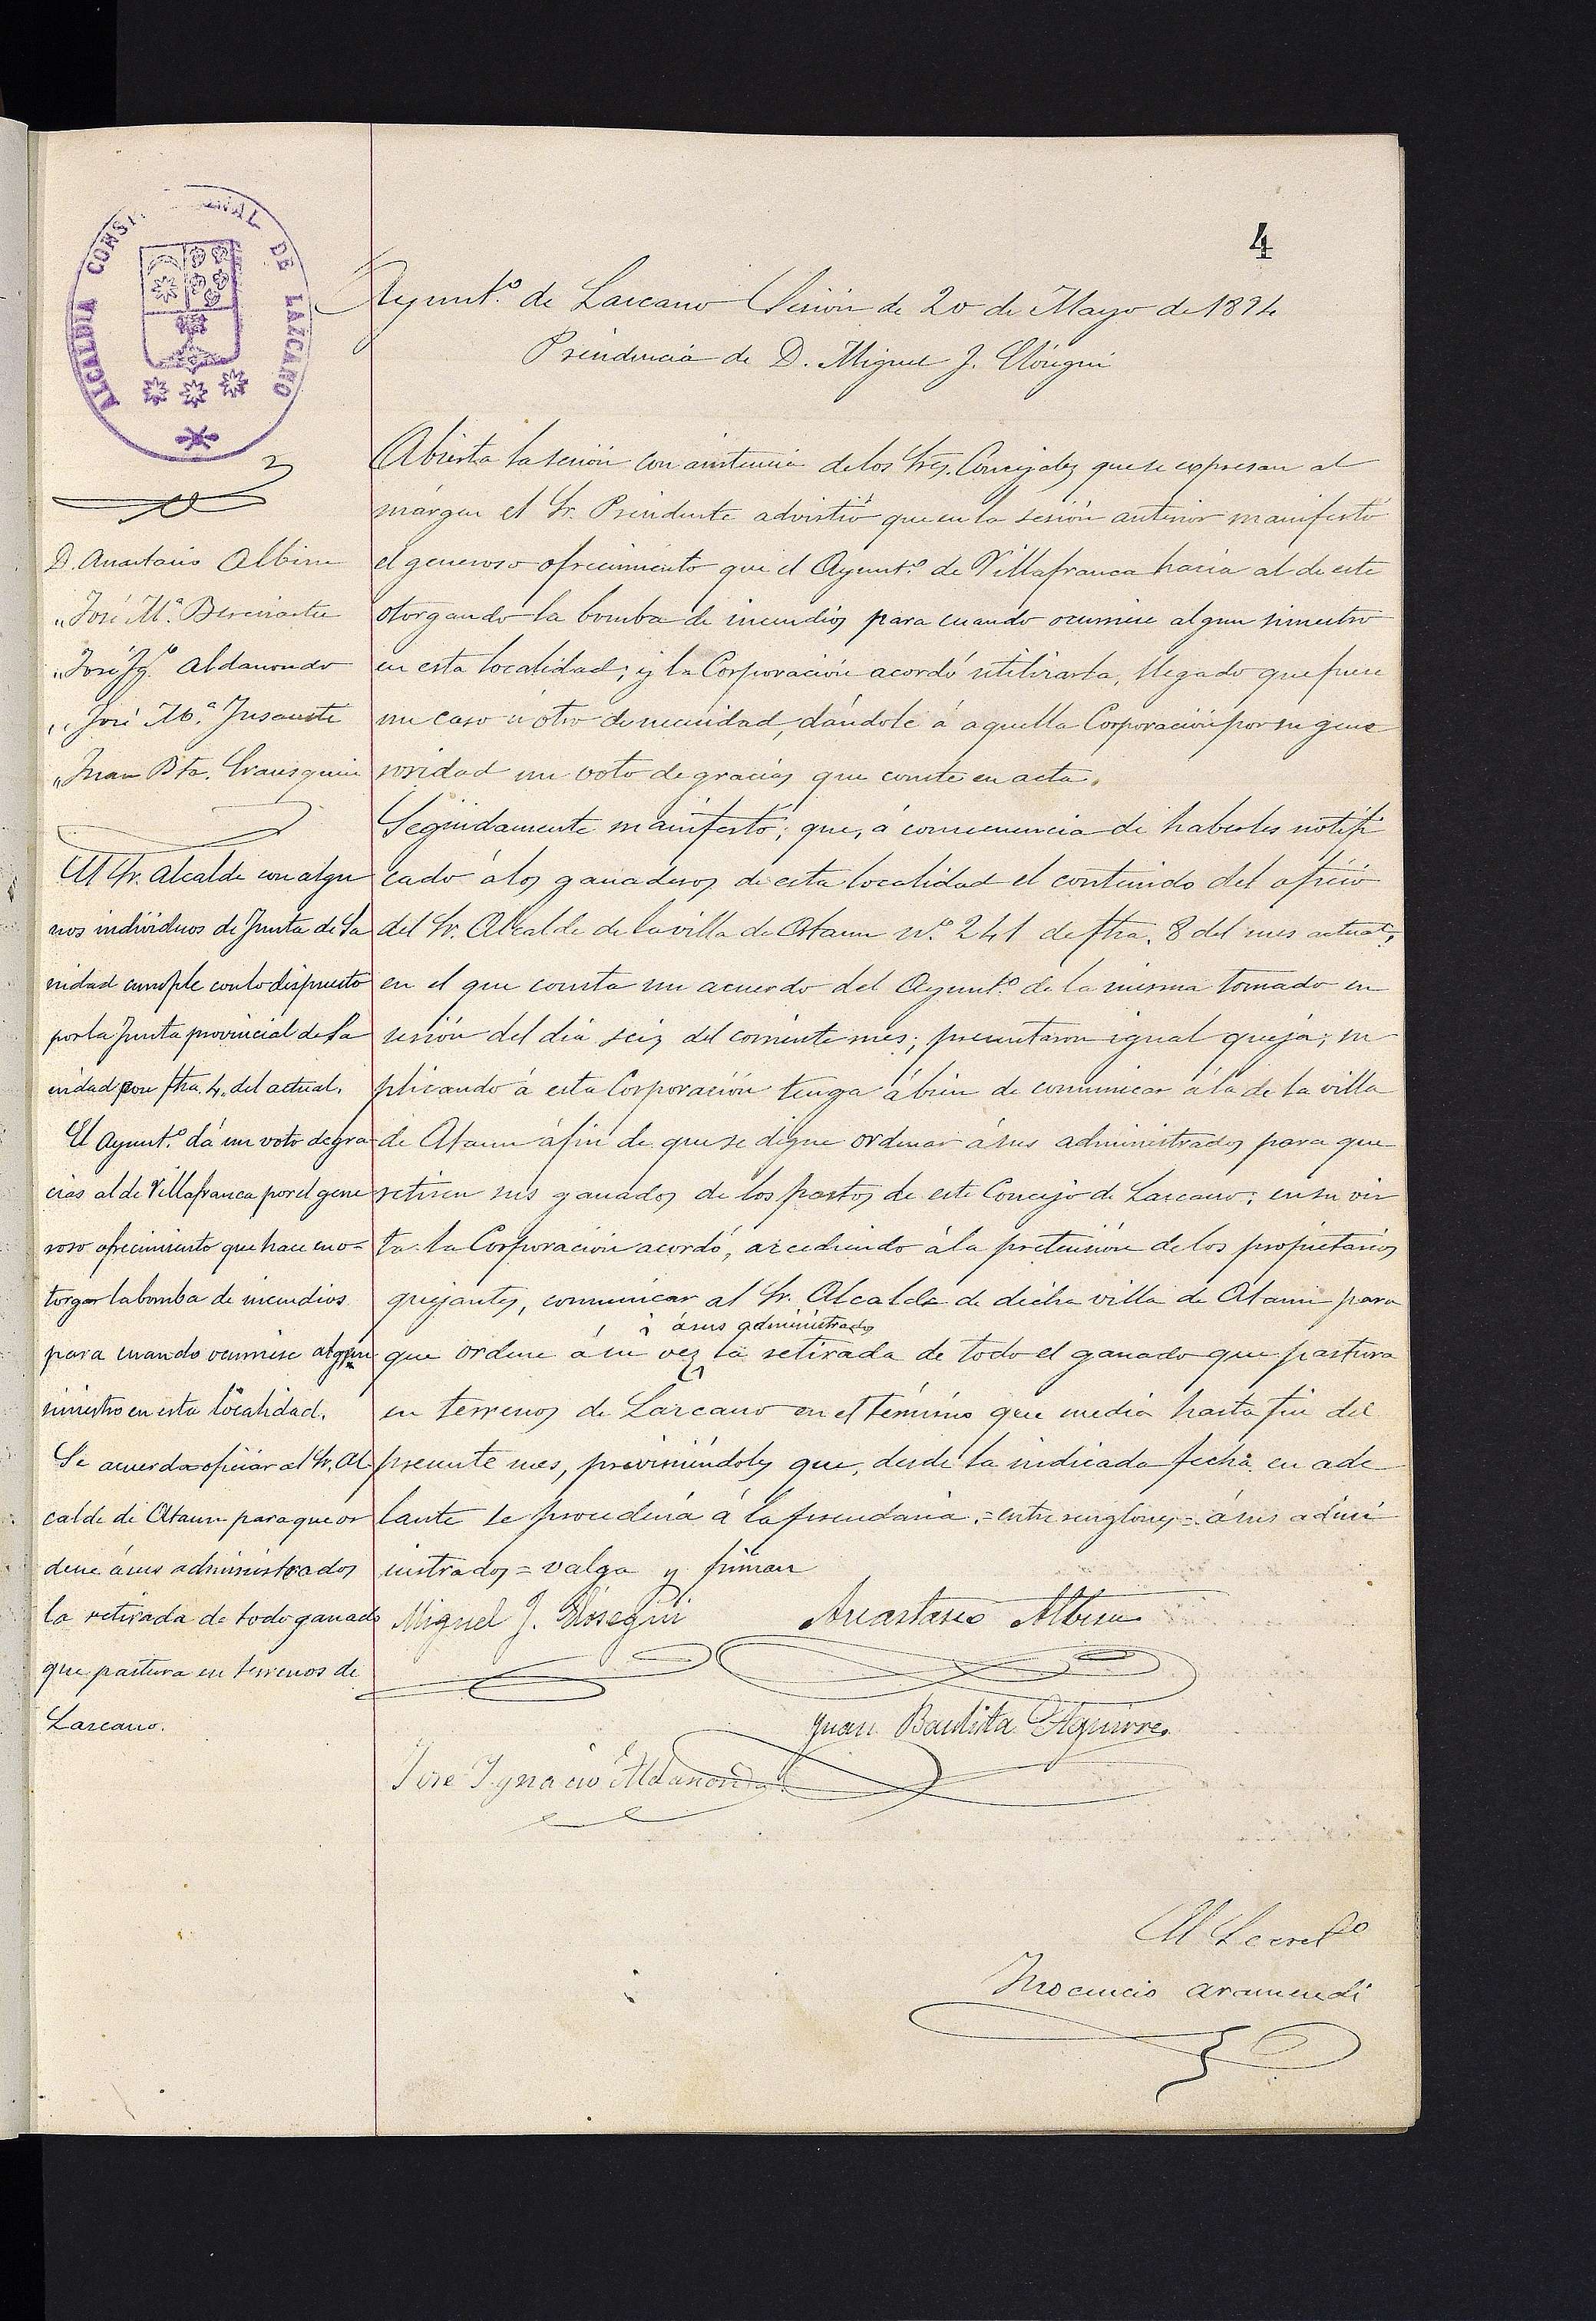 4
ALCALDIA CONSTITUCIONAL DE LAZCANO
Ayunt.º de Lazcano Sesión de 20 de Mayo de 1894
Presidencia de D. Miguel J. Elósegui
D. Anastasio Albisu
„ José M.ª
„ José Ig.º Aldanondo
„ José M.ª Insausti
„ Juan Bta.
El Sr. Alcalde con algu
nos individuos de Junta de Sa
nidad cumple con lo dispuesto
por la Junta provincial de Sa
nidad con fha. 4. del actual.
El Ayunt.º dá un voto de gra
cias al de Villafranca por el gene
roso ofrecimiento que hace en o-
torgar la bomba de incendios
para cuando ocurriese algun
siniestro en esta localidad.
Se acuerda oficiar al Sr. Al
calde de Ataun para que or
dene á sus administrados
la retirada de todo ganado
que pastura en terrenos de
Lazcano.
Abierta la sesión con asistencia de los Sres. Concejales que se expresan al
márgen el Sr. Presidente advirtió que en la sesión anterior manifestó
el generoso ofrecimiento que el Ayunt.º de Villafranca hacia al de este
otorgando la bomba de incendios para cuando ocurriese algun siniestro
en esta localidad; y la Corporación acordó utilizarla, llegado que fuese
un caso ú otro de necesidad, dándole á aquella Corporación por su gene
rosidad un voto de gracias que conste en acta.
Seguidamente manifestó; que, á consecuencia de haberles notifi
cado á los ganaderos de esta localidad el contenido del oficio
del Sr. Alcalde de la villa de Ataun N.º 241 de fha. 8 del mes actual,
en el que consta un acuerdo del Ayunt.º de la misma tomado en
sesión del dia seis del corriente mes; presentaron igual queja; su
plicando á esta Corporación tenga á bien de comunicar á la de la villa
de Ataun á fin de que se digne ordenar á sus administrados para que
retiren sus ganados de los pastos de este Concejo de Lazcano; en su vis
ta la Corporación acordó, accediendo á la pretensión de los propietarios
quejantes, comunicar al Sr. Alcalde de dicha villa de Ataun para
á sus administrados
que ordene á su vez la retirada de todo el ganado que pastura
en terrenos de Lazcano en el término que media hasta fin del
presente mes, previniéndoles que, desde la indicada fecha en ade
lante se procederá á la prendaria. = entre renglones = á sus admi
nistrados = valga y firman
Miguel J. Elósegui
Anastasio Albisu
Juan Bautista Aguirre
José Ygnacio Aldanondo
El Secret.º
Inocencio Aramendi